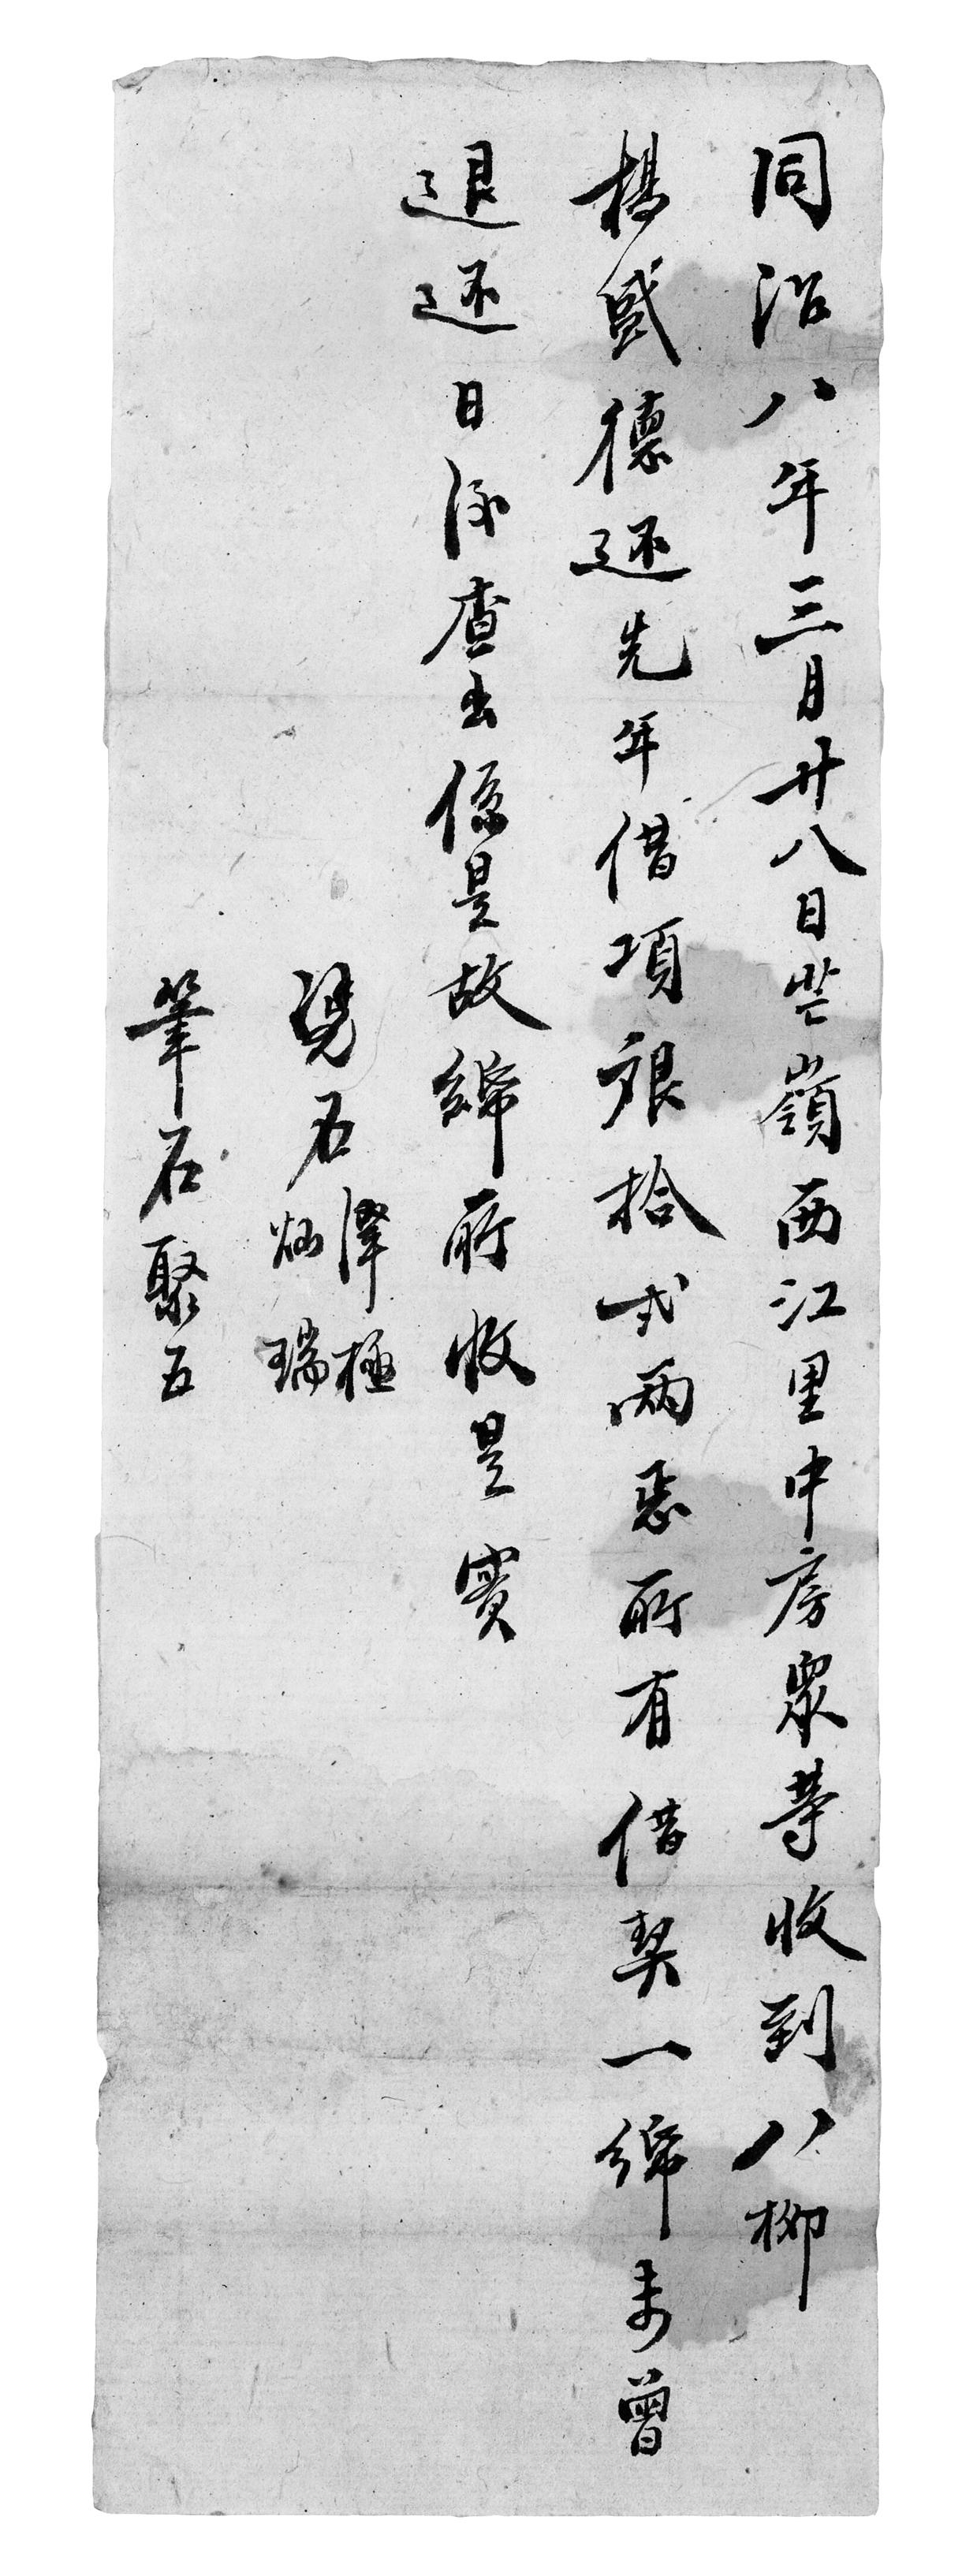 同治八年三月廿八日岩嶺西江里中房眾等收到八柳
楊盛德还先年借項銀拾弍両悉所有借契一𥿄未曾
退还日後查出係是故𥿄所收是實
見石澤極
燦瑞
筆石聚五